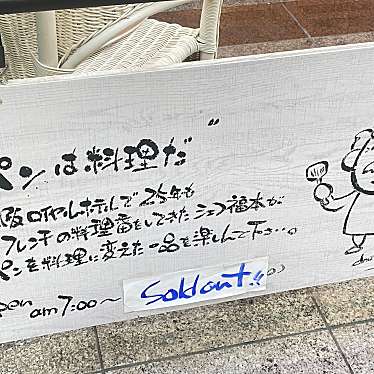 ペンは料理だ”
阪ロイヤルホテルで25年も
フレンチの料理番をしてきたシェフ福本が
ペンを料理に変えた一品を楽しんで下…。
pen
am7:00〜
Soldout!!